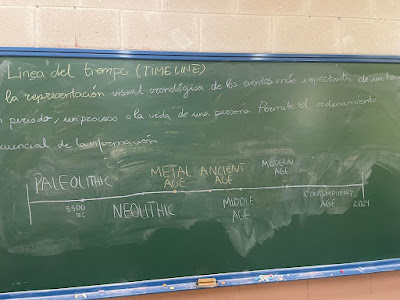 Línea del tiempo (TIMELINE)
la representación visual cronológica de los eventos más importantes de un
periodo, un proceso o la vida de una persona. Permite el ordenamiento
de la información
PALEOLITHIC METAL AGE ANCIENT AGE MODERN AGE
3500 NEOLITHIC MIDDLE AGE CONTEMPORARY AGE 2024